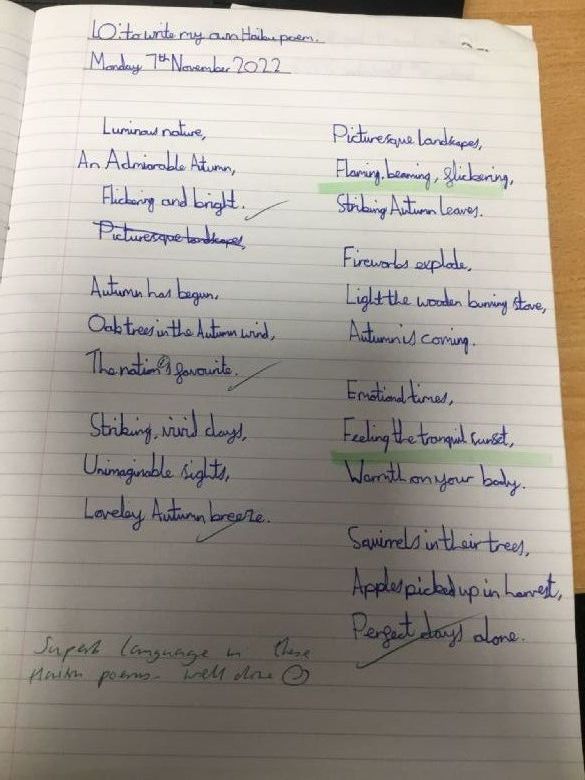 LO: to write my own Haiku poem.
Monday 7th November 2022
Luminous nature,
An Admiorable Atumn,
Flickering and bright.
Picturesque landscapes,
Autumn has begun,
Oak trees in the Autumn wind,
The nation's favourite.
Striking, vivid days,
Unimaginable sights,
Loveley Autumn breeze.
Picturesque landscapes,
Flaming, beaming, flickering,
Striking Autumn Leaves.
Fireworks explode,
Light the wooden burning stove,
Autumn is coming.
Emotional times,
Feeling the tranquil sunset,
Warmth on your body.
Squirrels in their trees,
Apples picked up in harvest,
Perfect days alone.
Superb language in these
Haiku poems - well done